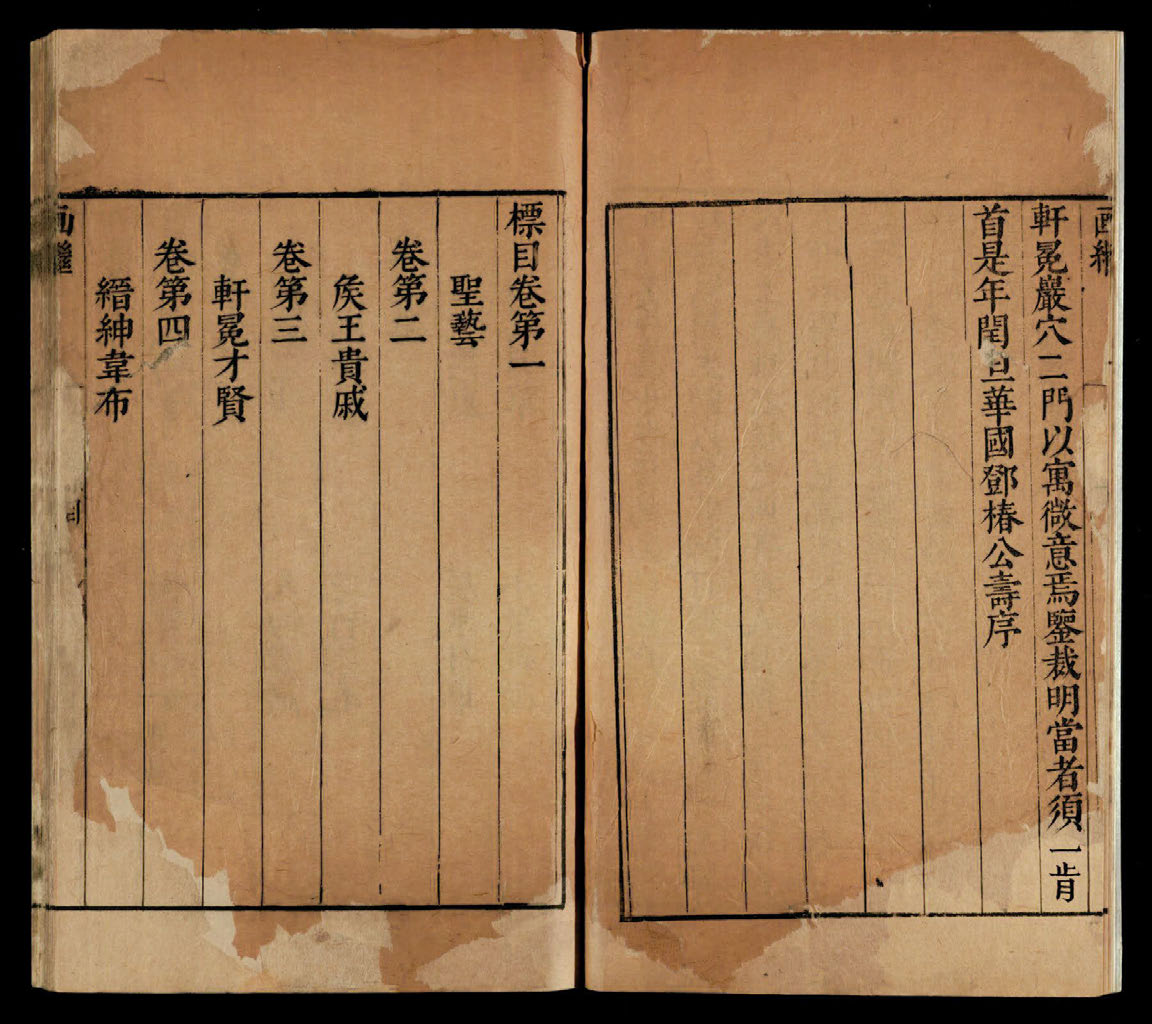 画繼
軒冕巖穴二門以寓微意焉鑒裁明當者須一肯
首是年閏旦華國鄧椿公壽序
標目卷第一
聖藝
卷第二
矦王貴戚
卷第三
軒冕才賢
卷第四
縉紳韋布
画繼